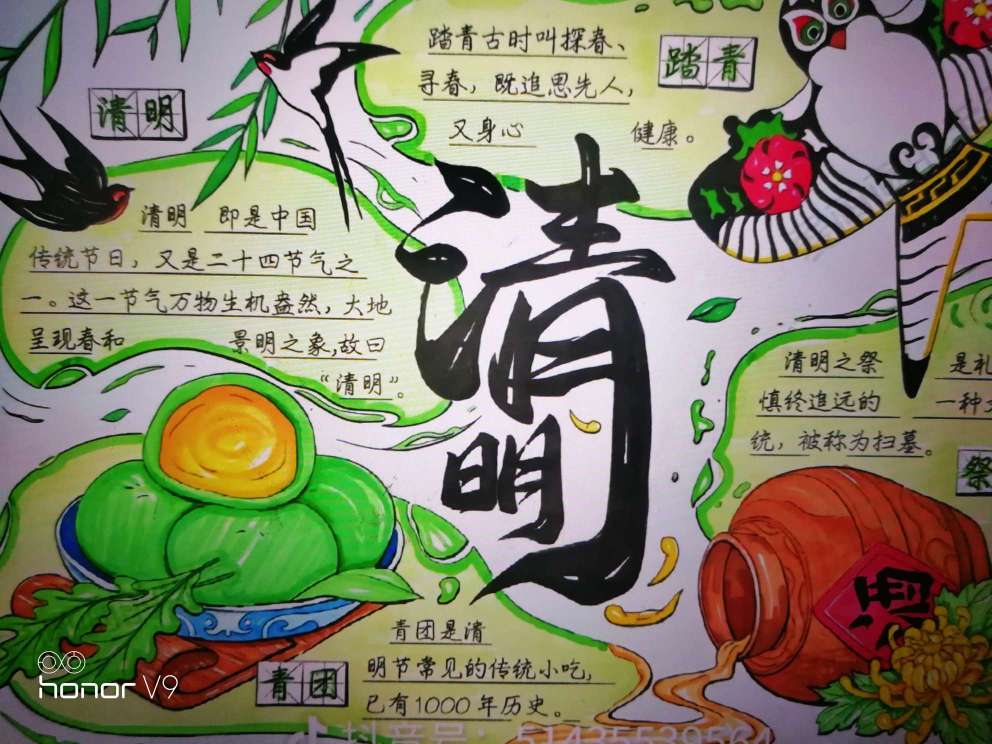 踏青古时叫探春、
寻春，既追思先人，
又身心 健康。
踏青
清明
清明 即是中国
传统节日，又是二十四节气之
一。这一节气万物生机盎然，大地
呈现春和 景明之象，故曰
“清明”。
清明
清明之祭 是礼
慎终追远的 一种
统，被称为扫墓。
祭
酒
青团是清
明节常见的传统小吃，
已有1000年历史。
青团
honor V9